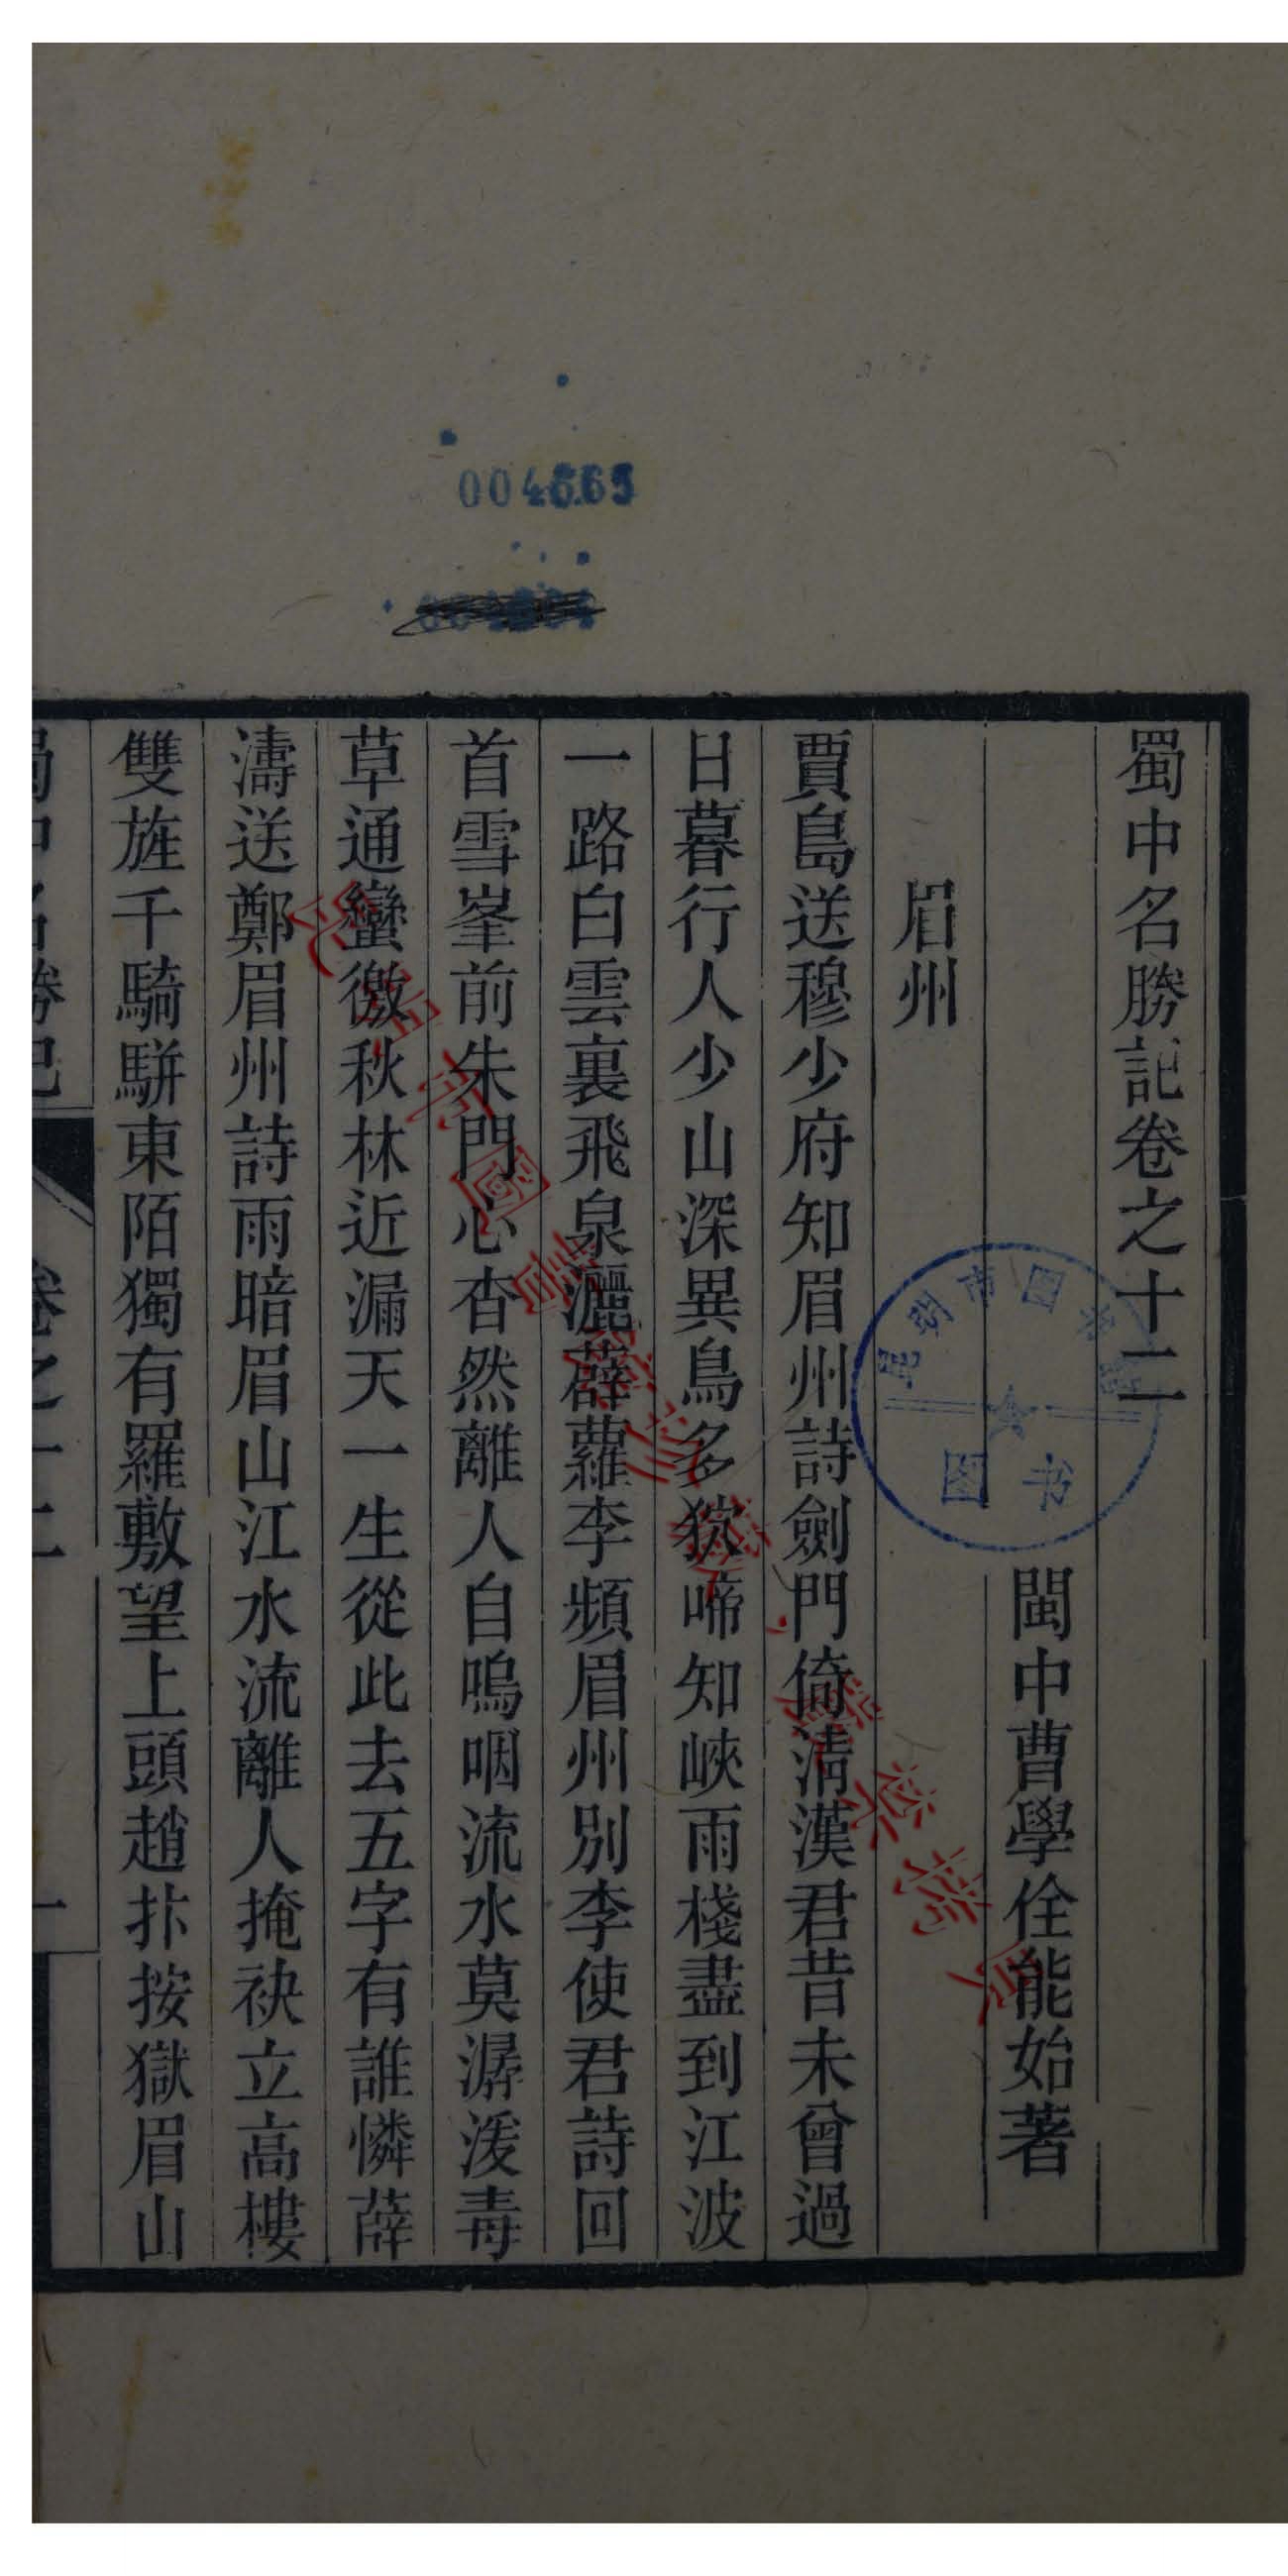 蜀中名勝記卷之十二
閩中曹學佺能始著
眉州
賈島送穆少府知眉州詩劍門倚清漢君昔未曾過
日暮行人少山深異鳥多猿啼知峽雨棧盡到江波
一路白雲裏飛泉灑薜蘿李頻眉州別李使君詩回
首雪峯前朱門心杳然離人自嗚咽流水莫潺湲毒
草通蠻徼秋林近漏天一生從此去五字有誰憐薛
濤送鄭眉州詩雨暗眉山江水流離人掩袂立高樓
雙旌千騎駢東陌獨有羅敷望上頭趙抃按獄眉山
卷之十二
一
004565
昆明市图书馆
图书